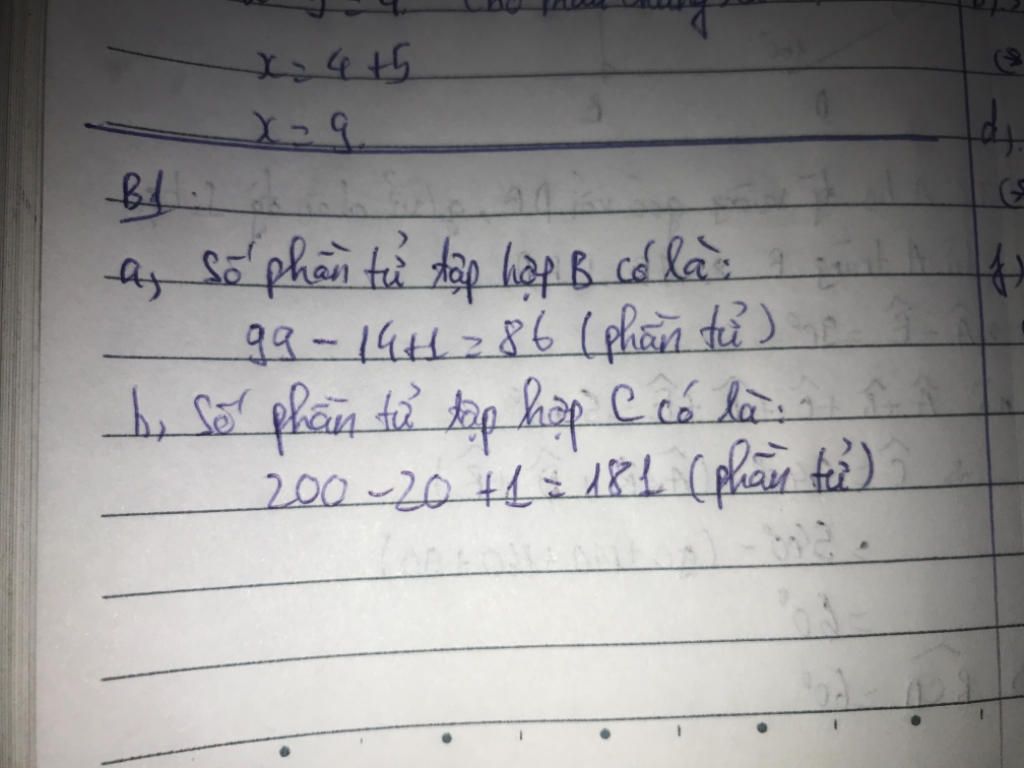 x = 4 + 5
x = 9.
B1
a, Số phần tử tập hợp B có là:
99 - 14 + 1 = 86 (phần tử)
b, Số phần tử tập hợp C có là:
200 - 20 + 1 = 181 (phần tử)